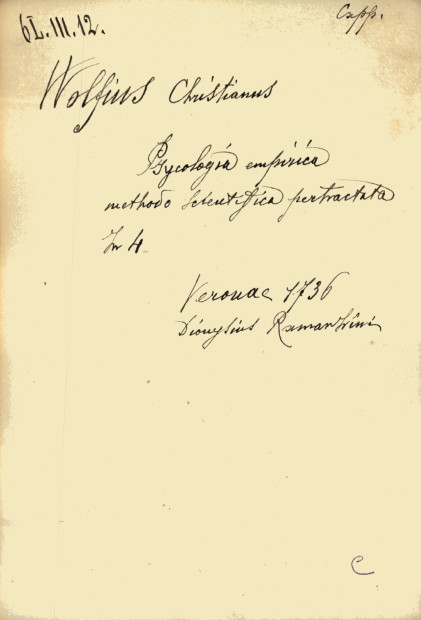 61.III.12.
Capp.
Wolfius Christianus
Psycologia empirica
methodo scientifica pertractata
In 4
Veronae 1736
Dionysius Ramanzini
C